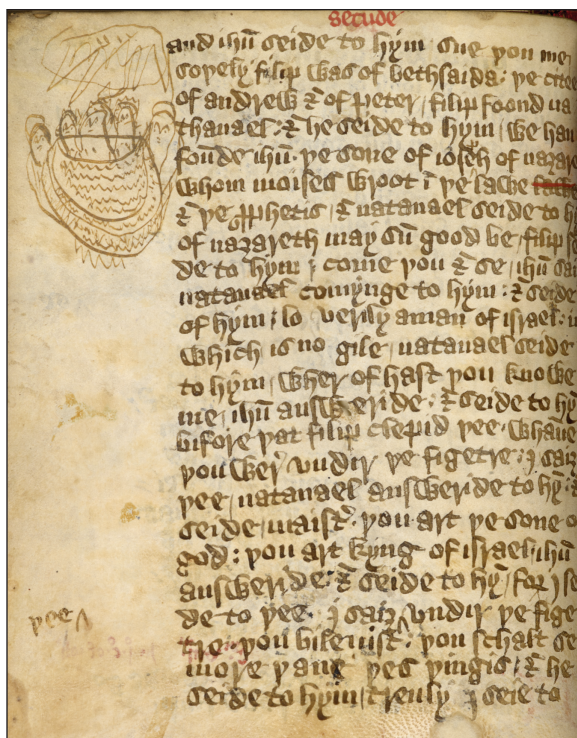 secude
and ihū seide to hym sue þou me
soþely filip was of bethsaida: þe citee
of andrew ⁊ of peter / filip foond na
thanael: ⁊ he seide to hym / we han
founde ihū. þe sone of ioseph of nazare
whom moises wroot ī þe lawe
⁊ þe ꝓphetis / ⁊ natanael seide to h
of nazareth may sū good be / filip se
de to hym ; come þou ⁊ se / ihū sai
natanael comynge to hym: ⁊ seide
of hym ; lo verily aman of israel: i
which is no gile / natanael seide
to hym / wher of hast þou knowe
me / ihū answeride: ⁊ seide to hȳ
bifore þat filip clepid þee. whane
þou wer vndir þe figetre: j saiȝ
þee / natanael answeride to hȳ: ⁊
seide / maistˀ. þou art þe sone o
god: þou art kyng of israel / ihū
answeride: ⁊ seide to hȳ / for j se
de to þee. j saiȝ ʌ vndir þe fige
þee ʌ
tre. þou bileuist: þou schalt se
more þane þes þingis / ⁊ he
seide to hym / treuly j seie to